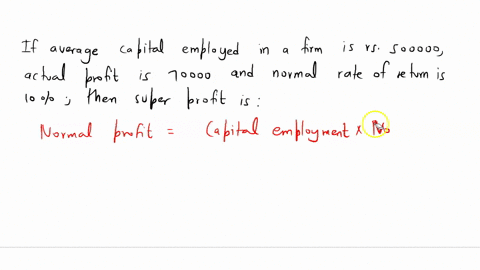 If average capital employed in a firm is rs. 500000,
actual profit is 70000 and normal rate of return is
10%; then super profit is:
Normal profit = Capital employment ×